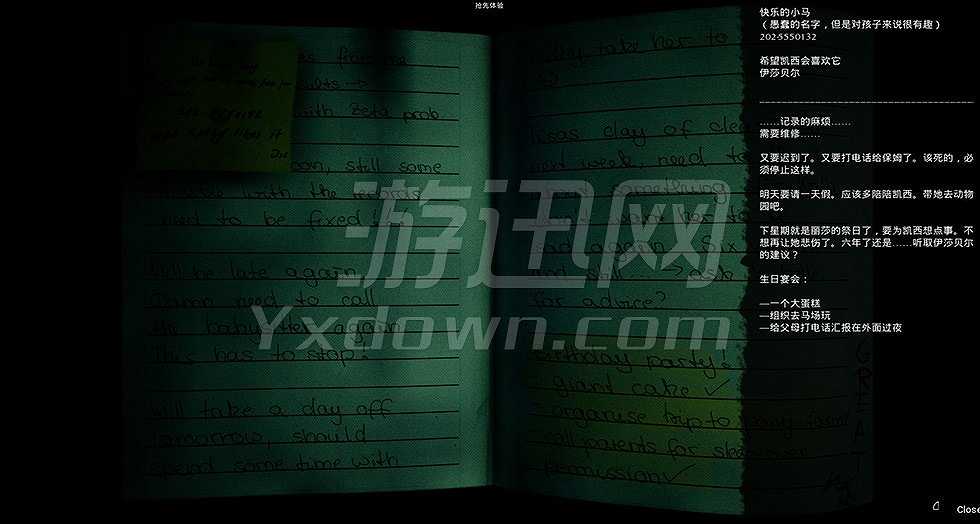 抢先体验
es from the
ults →
with Zeta prob
soon, still some
trouble with the records
need to be fixed!!
Will be late again.
Damn need to call
the babysitter again.
This has to stop!
will take a day off
tomorrow, should
spend some time with
take her to
Lisas day of
next week, need to
something
want her to
sad again. Six
and still → ask
for advice?
birthday party!
giant cake ✓
organise trip to pony farm
call parents for sleepover
permission ✓
likes it
游迅网
Yxdown.com
快乐的小马
（愚蠢的名字，但是对孩子来说很有趣）
2025550132
希望凯西会喜欢它
伊莎贝尔
……记录的麻烦……
需要维修……
又要迟到了。又要打电话给保姆了。该死的，必
须停止这样。
明天要请一天假。应该多陪陪凯西。带她去动物
园吧。
下星期就是丽莎的祭日了，要为凯西想点事。不
想再让她悲伤了。六年了还是……听取伊莎贝尔
的建议？
生日宴会：
—一个大蛋糕
—组织去马场玩
—给父母打电话汇报在外面过夜
Close